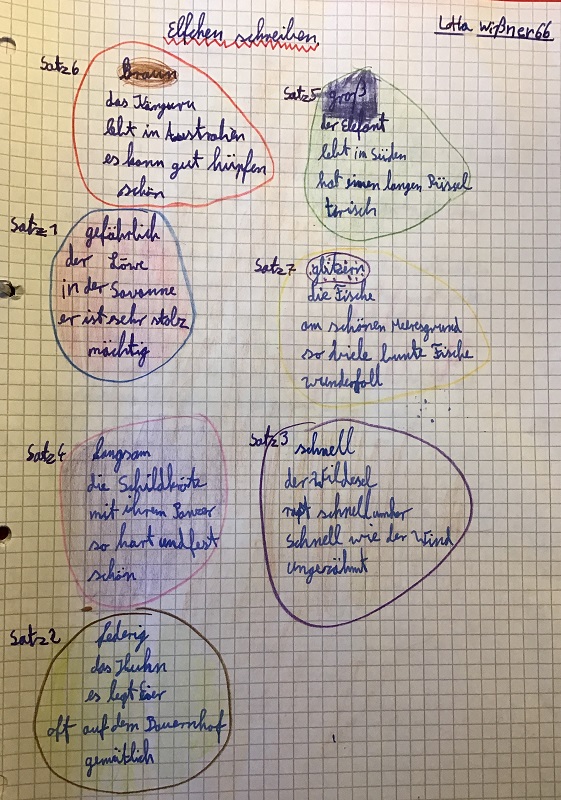 Elfchen schreiben.
Lotta Wißner 6b
Satz 6
braun
das Känguru
lebt in Australien
es kann gut hüpfen
schön
Satz 5
groß
der Elefant
lebt im Süden
hat einen langen Rüssel
Satz 1
gefährlich
der Löwe
in der Savanne
er ist sehr stolz
mächtig
Satz 7
glitzern
die Fische
am schönen Meeresgrund
so viele bunte Fische
wunderfoll
Satz 4
langsam
die Schildkröte
mit ihrem Panzer
so hart und fest
schön
Satz 3
schnell
der Wildesel
schnell umher
schnell wie der Wind
ungezähmt
Satz 2
federig
das Huhn
es legt Eier
oft auf dem Bauernhof
gemütlich